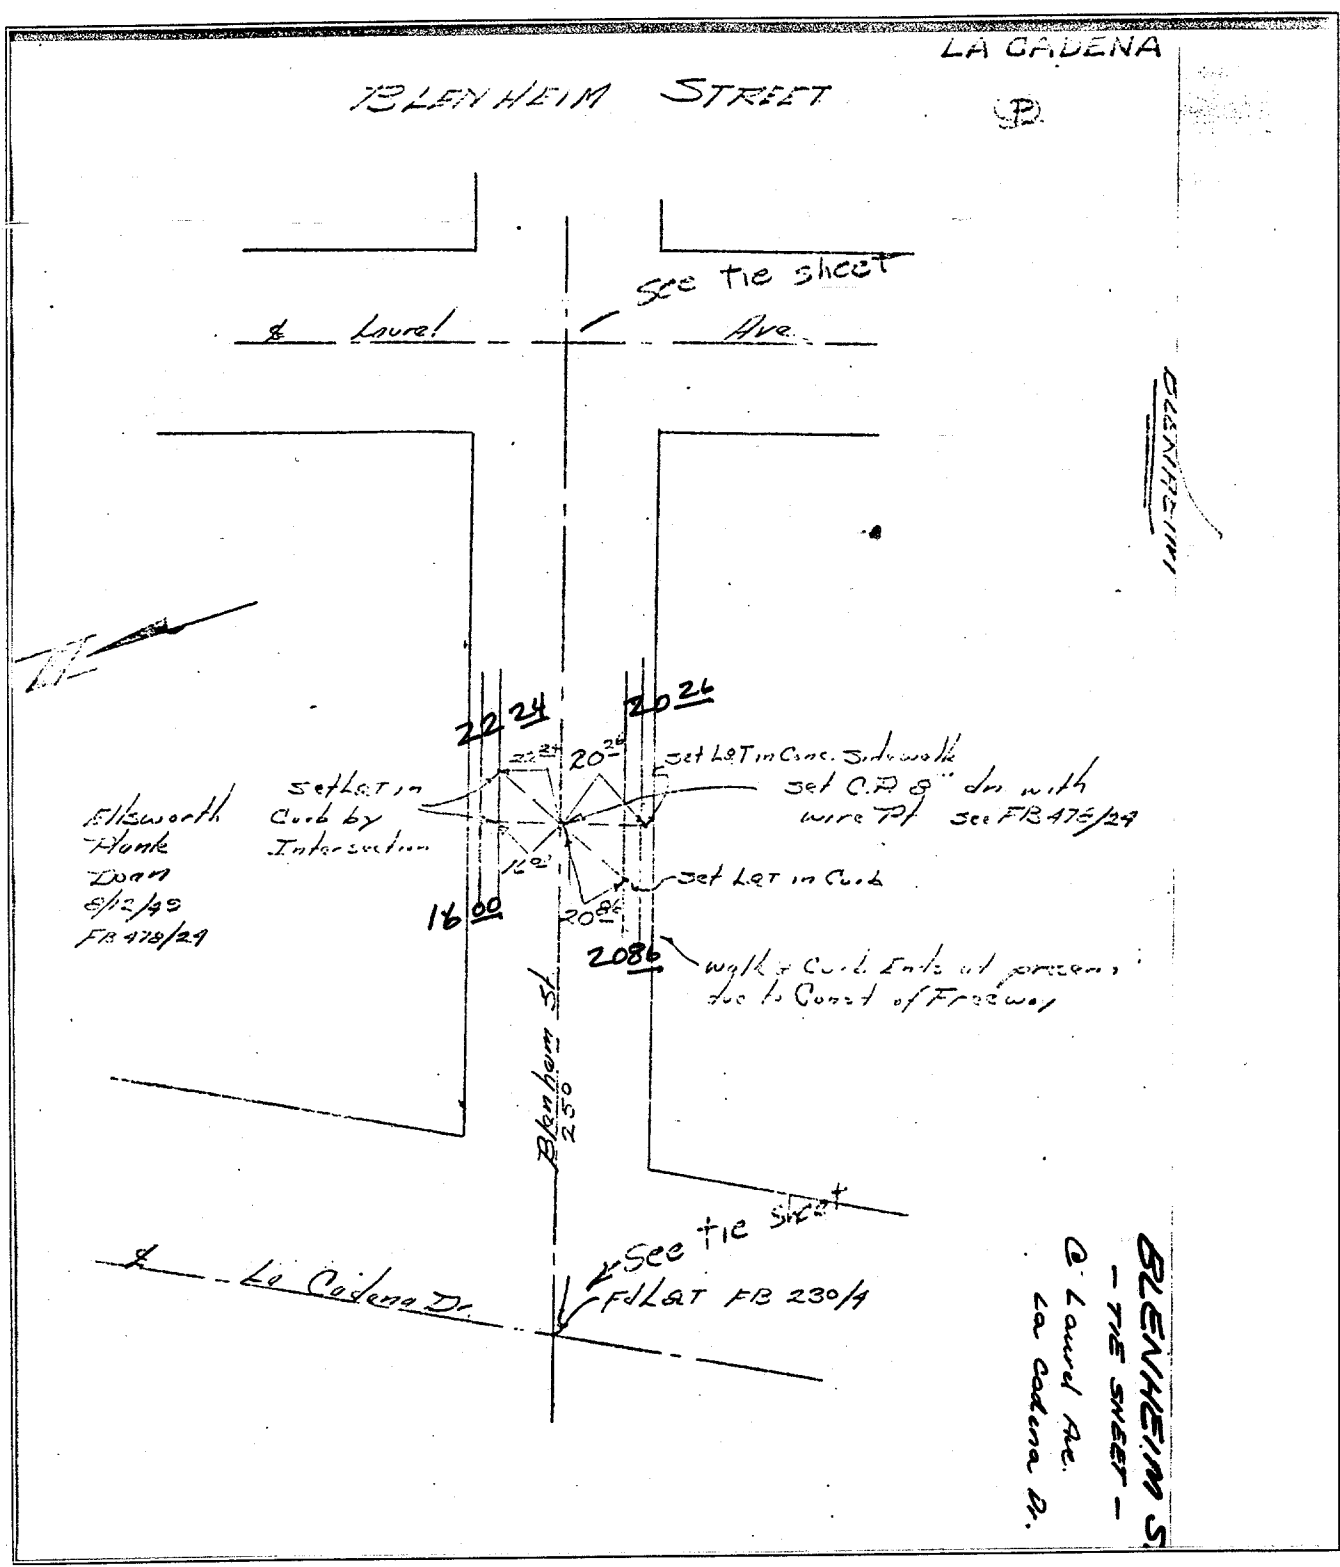 LA CADENA
BLENHEIM STREET
P
See tie sheet
℄ Laurel Ave.
BLENHEIM
N
22 24
20 26
22 24
20 26
set L&T in Conc. Sidewalk
set C.P. 8" dn with
wire Pt see FB 478/29
set L&T in
Curb by
Intersection
Ellsworth
Plank
Doan
FB 478/29
set L&T in Curb
16 00
16 00
20 86
20 86
walk & Curb Ends at present
due to Const of Freeway
Blenheim St
250
See tie sheet
℄ La Cadena Dr.
Fd L&T FB 230/4
BLENHEIM S
- TIE SHEET -
@ Laurel Ave.
La Cadena Dr.